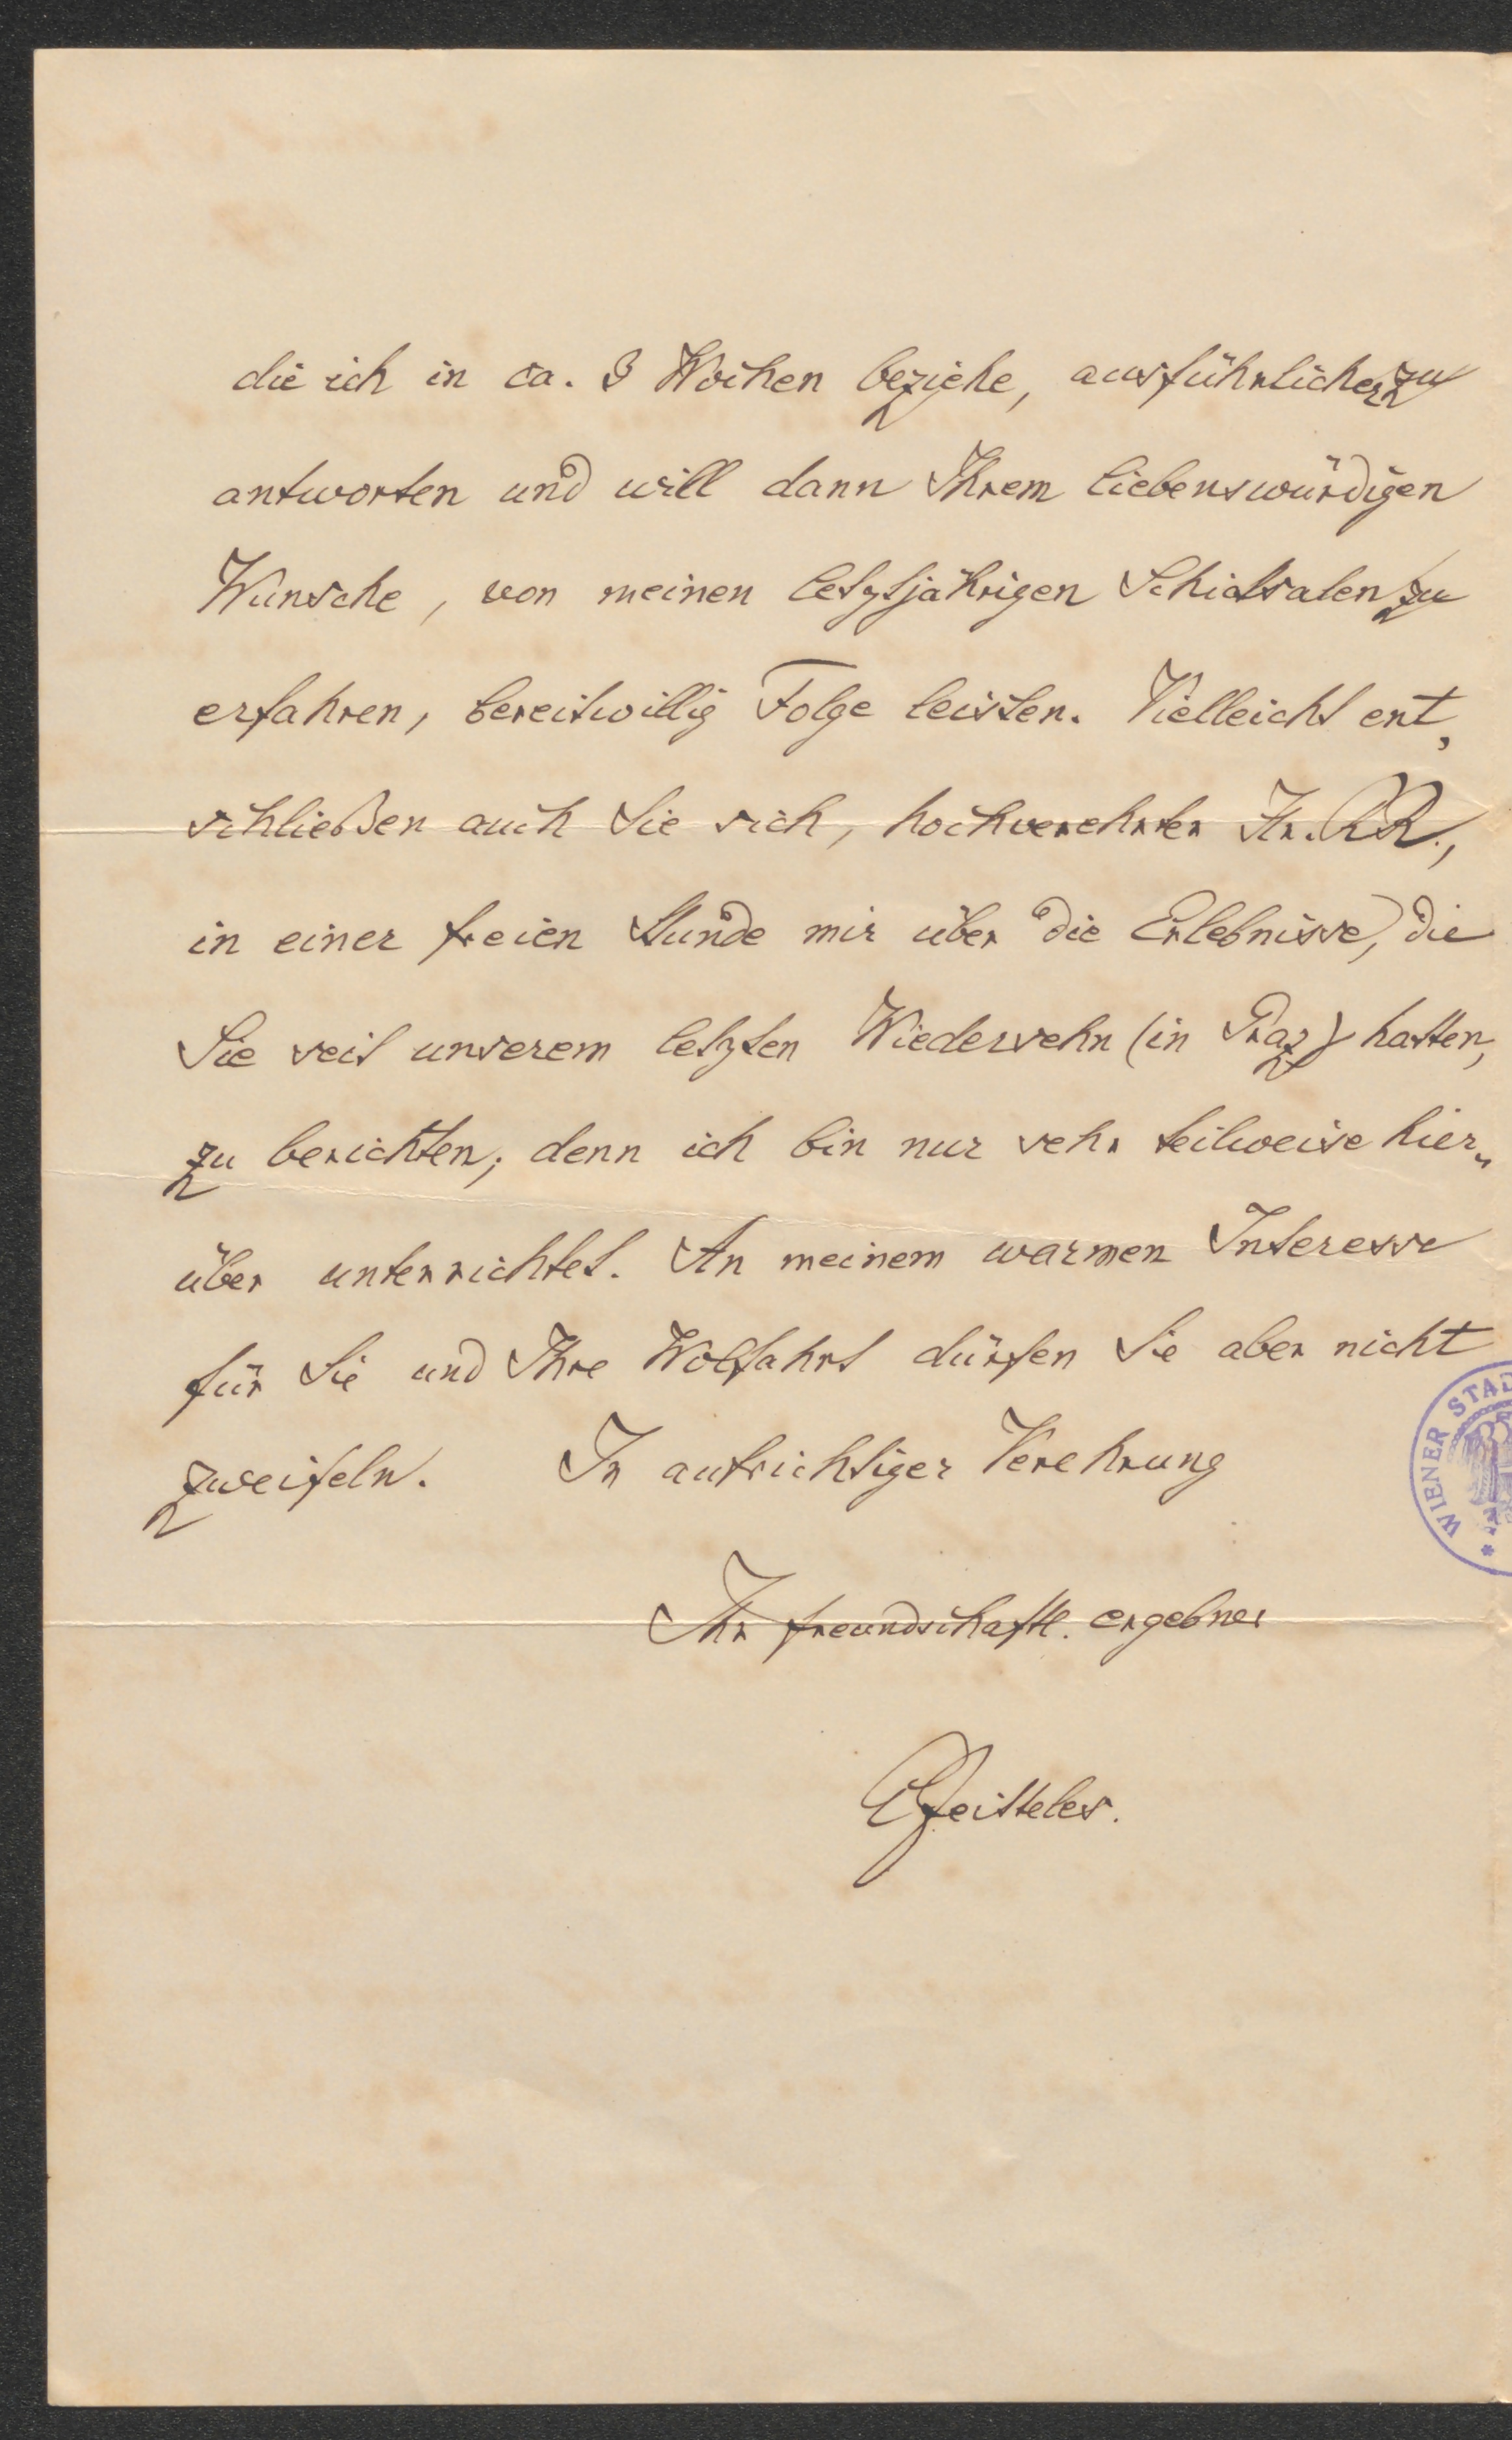 die ich in ca. 3 Wochen beziehe, ausführlicher zu
antworten und will dann Ihrem liebenswürdigen
Wunsche, von meinen letztjährigen Schicksalen zu
erfahren, bereitwillig Folge leisten. Vielleicht ent-
schließen auch Sie sich, hochverehrter Hr. RR.,
in einer freien Stunde mir über die Erlebnisse, die
Sie seit unserem letzten Wiedersehn (in Graz) hatten,
zu berichten; denn ich bin nur sehr teilweise hier-
über unterrichtet. An meinem warmen Interesse
für Sie und Ihre Wolfahrt dürfen Sie aber nicht
zweifeln. In aufrichtiger Verehrung
Ihr freundschaftl. ergebner
Jeitteles.
WIENER STAD